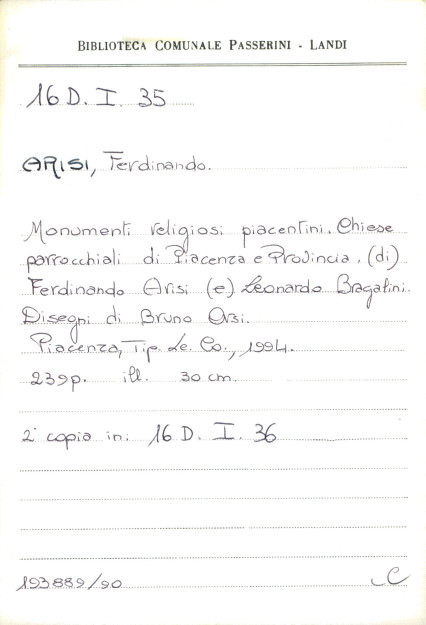 BIBLIOTECA COMUNALE PASSERINI - LANDI
16 D. I. 35
ARISI, Ferdinando.
Monumenti religiosi piacentini. Chiese
parrocchiali di Piacenza e Provincia. (di)
Ferdinando Arisi (e) Leonardo Bragalini.
Disegni di Bruno Orsi.
Piacenza, Tip. Le. Co., 1994.
239 p. ill. 30 cm.
2ª copia in: 16 D. I. 36
193889/90 C